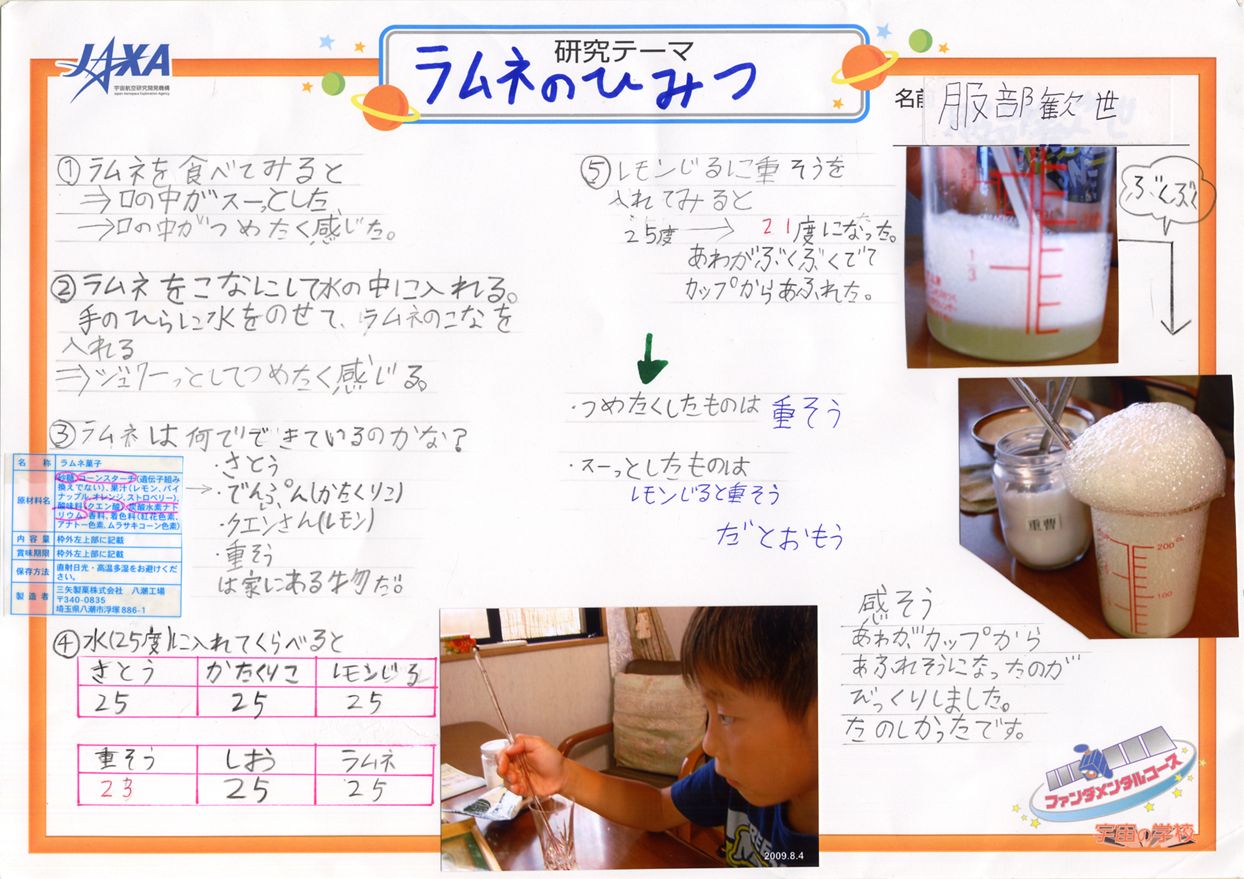 JAXA
宇宙航空研究開発機構
Japan Aerospace Exploration Agency
研究テーマ
ラムネのひみつ
名前 服部歓世
①ラムネを食べてみると
⇒口の中がスーっとした
→口の中がつめたく感じた。
②ラムネをこなにして水の中に入れる。
手のひらに水をのせて、ラムネのこなを
入れる
⇒ジュワーっとしてつめたく感じる。
③ラムネは何でできているのかな?
・さとう
・でんぷん(かたくりこ)
・クエンさん(レモン)
・重そう
は家にある物だ。
名称 ラムネ菓子
原材料名 砂糖、コーンスターチ(遺伝子組み
換えでない)、果汁(レモン、パイ
ナップル、オレンジ、ストロベリー)、
酸味料(クエン酸)、炭酸水素ナト
リウム、香料、着色料(紅花色素、
アナトー色素、ムラサキコーン色素)
内容量 枠外左上部に記載
賞味期限 枠外左上部に記載
保存方法 直射日光・高温多湿をお避けくだ
さい。
製造者 三矢製菓株式会社 八潮工場
〒340-0835
埼玉県八潮市浮塚886-1
④水(25度)に入れてくらべると
さとう かたくりこ レモンじる
25 25 25
重そう しお ラムネ
23 25 25
⑤レモンじるに重そうを
入れてみると
25度 → 21度になった。
あわがぶくぶくでて
カップからあふれた。
・つめたくしたものは 重そう
・スーっとしたものは
レモンじると重そう
だとおもう
ぶくぶく
1/3
重曹
200
100
感そう
あわがカップから
あふれそうになったのが
びっくりしました。
たのしかったです。
2009.8.4
ファンダメンタルコース
宇宙の学校